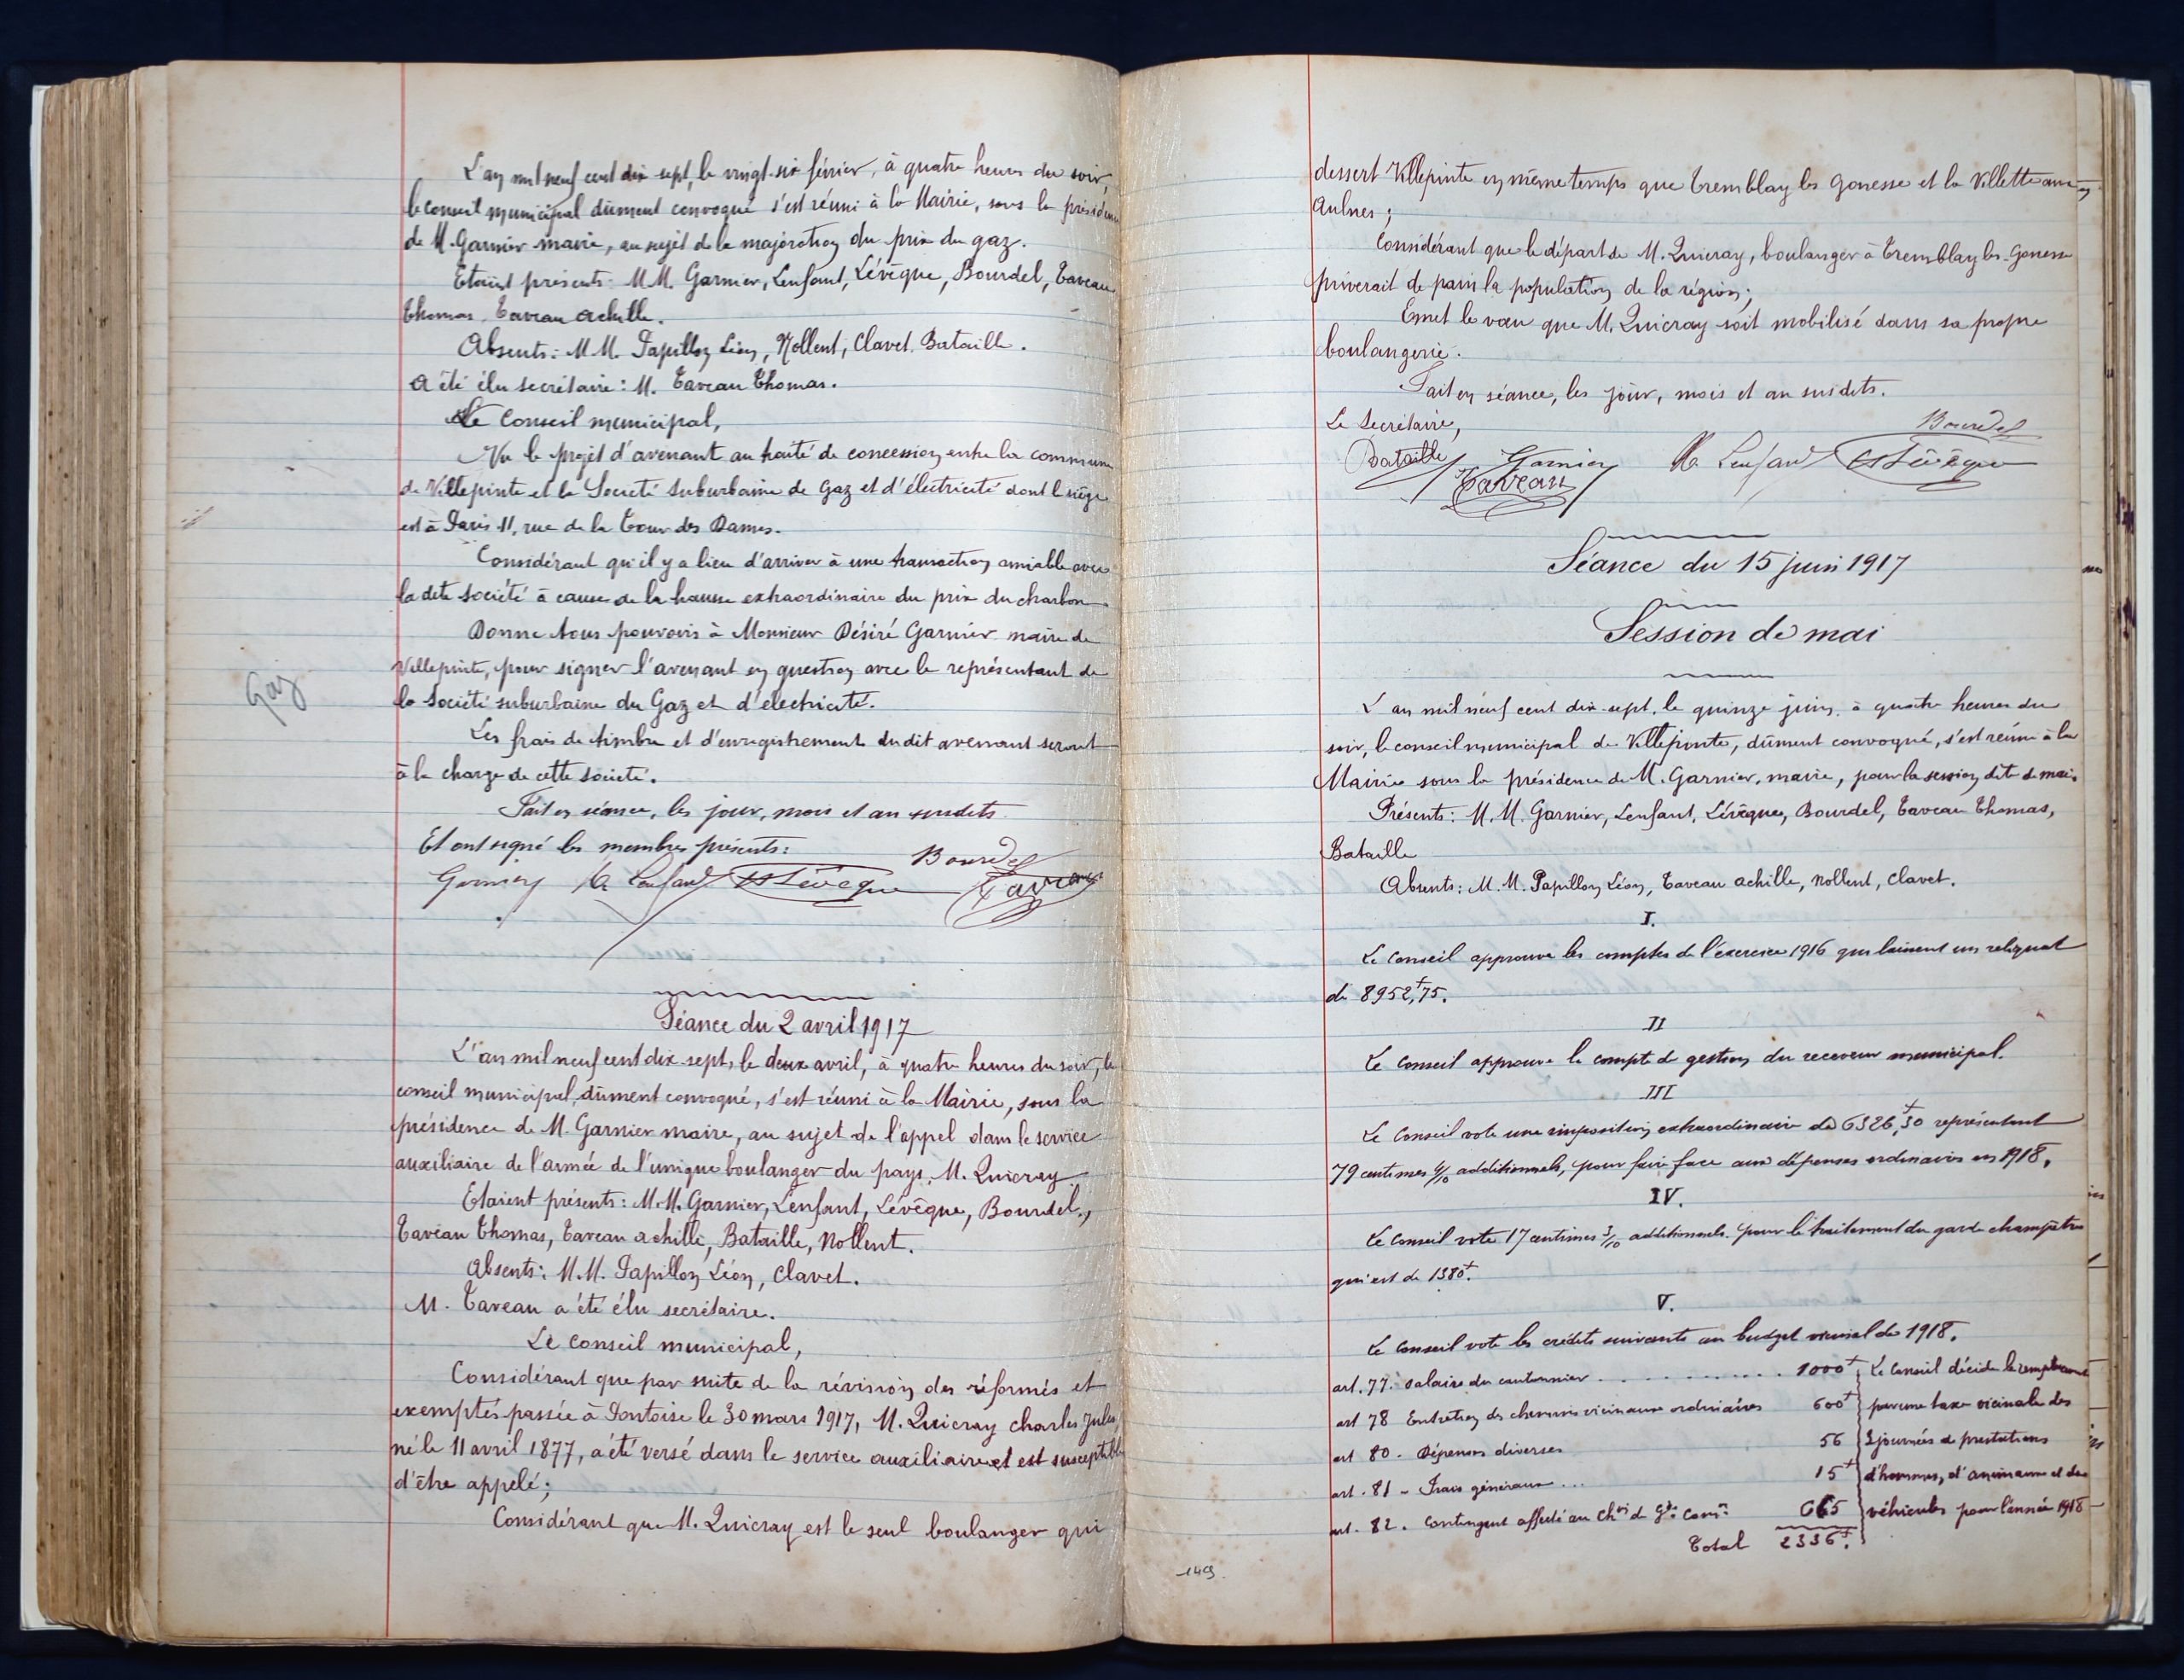 L'an mil neuf cent dix sept, le vingt-six février, à quatre heures du soir,
le conseil municipal dûment convoqué s'est réuni à la Mairie, sous la présidence
de M. Garnier maire, au sujet de la majoration du prix du gaz.
Etaient présents: M.M. Garnier, Lenfant, Lévêque, Bourdel, Taveau
Thomas, Taveau achille.
Absents: M.M. Papillon Léon, Nollent, Clavet, Bataille.
A été élu secrétaire: M. Taveau Thomas.
Le Conseil municipal,
Vu le projet d'avenant au traité de concession entre la commune
de Villepinte et la Société suburbaine de Gaz et d'électricité dont le siège
est à Paris 11, rue de la Tour des Dames.
Considérant qu'il y a lieu d'arriver à une transaction amiable avec
la dite société à cause de la hausse extraordinaire du prix du charbon
Donne tous pouvoirs à Monsieur Désiré Garnier maire de
Villepinte, pour signer l'avenant en question avec le représentant de
la Société suburbaine du Gaz et d'électricité.
Gaz
Les frais de timbre et d'enregistrement du dit avenant seront
à la charge de cette société.
Fait en séance, les jour, mois et an susdits
Et ont signé les membres présents:
Bourdel
Garnier Lenfant Lévêque Taveau
Séance du 2 avril 1917
L'an mil neuf cent dix-sept, le deux avril, à quatre heures du soir, le
conseil municipal, dûment convoqué, s'est réuni à la Mairie, sous la
présidence de M. Garnier maire, au sujet de l'appel dans le service
auxiliaire de l'armée de l'unique boulanger du pays, M. Quicray
Etaient présents: M.M. Garnier, Lenfant, Lévêque, Bourdel,
Taveau Thomas, Taveau achille, Bataille, Nollent.
Absents: M.M. Papillon Léon, Clavet.
M. Taveau a été élu secrétaire.
Le Conseil municipal,
Considérant que par suite de la révision des réformés et
exemptés passée à Pontoise le 30 mars 1917, M. Quicray Charles Jules
né le 11 avril 1877, a été versé dans le service auxiliaire et est susceptible
d'être appelé;
Considérant que M. Quicray est le seul boulanger qui
dessert Villepinte en même temps que Tremblay les Gonesse et la Villette aux
Aulnes;
Considérant que le départ de M. Quicray, boulanger à Tremblay les-Gonesse
priverait de pain la population de la région;
Emet le vœu que M. Quicray soit mobilisé dans sa propre
boulangerie.
Fait en séance, les jour, mois et an susdits.
Le Secrétaire,
Bourdel
Bataille Garnier Lenfant Lévêque
Taveau
Séance du 15 juin 1917
Session de mai
L'an mil neuf cent dix-sept, le quinze juin, à quatre heures du
soir, le conseil municipal de Villepinte, dûment convoqué, s'est réuni à la
Mairie sous la présidence de M. Garnier, maire, pour la session dite de mai.
Présents: M.M. Garnier, Lenfant, Lévêque, Bourdel, Taveau Thomas,
Bataille
Absents: M.M. Papillon Léon, Taveau achille, Nollent, Clavet.
I.
Le Conseil approuve les comptes de l'exercice 1916 qui laissent un reliquat
de 8952,f75.
II
Le Conseil approuve le compte de gestion du receveur municipal.
III
Le Conseil vote une imposition extraordinaire de 6326,f30 représentant
79 centimes 4/10 additionnels, pour faire face aux dépenses ordinaires en 1918.
IV.
Le Conseil vote 17 centimes 3/10 additionnels pour le traitement du garde champêtre
qui est de 1380f.
V.
Le Conseil vote les crédits suivants au budget vicinal de 1918.
art. 77. Salaire du cantonnier . . . . . . . . . . 1000f Le Conseil décide le remplacement
art 78 Entretien des chemins vicinaux ordinaires 600f par une taxe vicinale des
art 80. Dépenses diverses 56 3 journées de prestations
art. 81 - Frais généraux ... 15f d'hommes, d'animaux et de
art. 82. Contingent affecté au chin de Gde Comon 665 véhicules pour l'année 1918
Total 2336f.
149